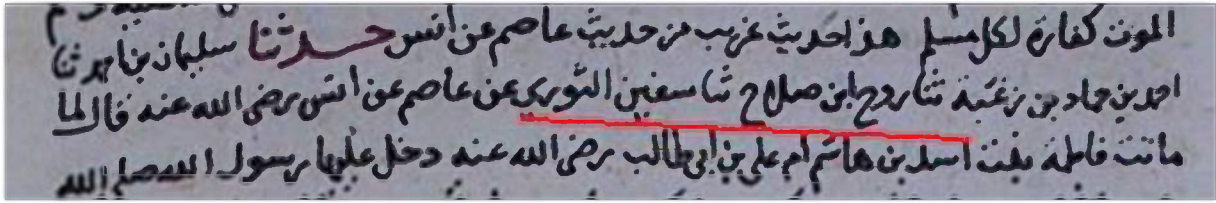 الموت كفارة لكل مسلم هذا حديث غريب من حديث عاصم عن انس حدثنا سليمان بن احمد ثنا
احمد بن حماد بن زغبة ثنا روح ابن صلاح ثنا سفين الثوري عن عاصم عن انس رضى الله عنه قال لما
ماتت فاطمة بنت اسد بن هاشم ام علي بن ابي طالب رضى الله عنه دخل عليها رسول الله صلى الله